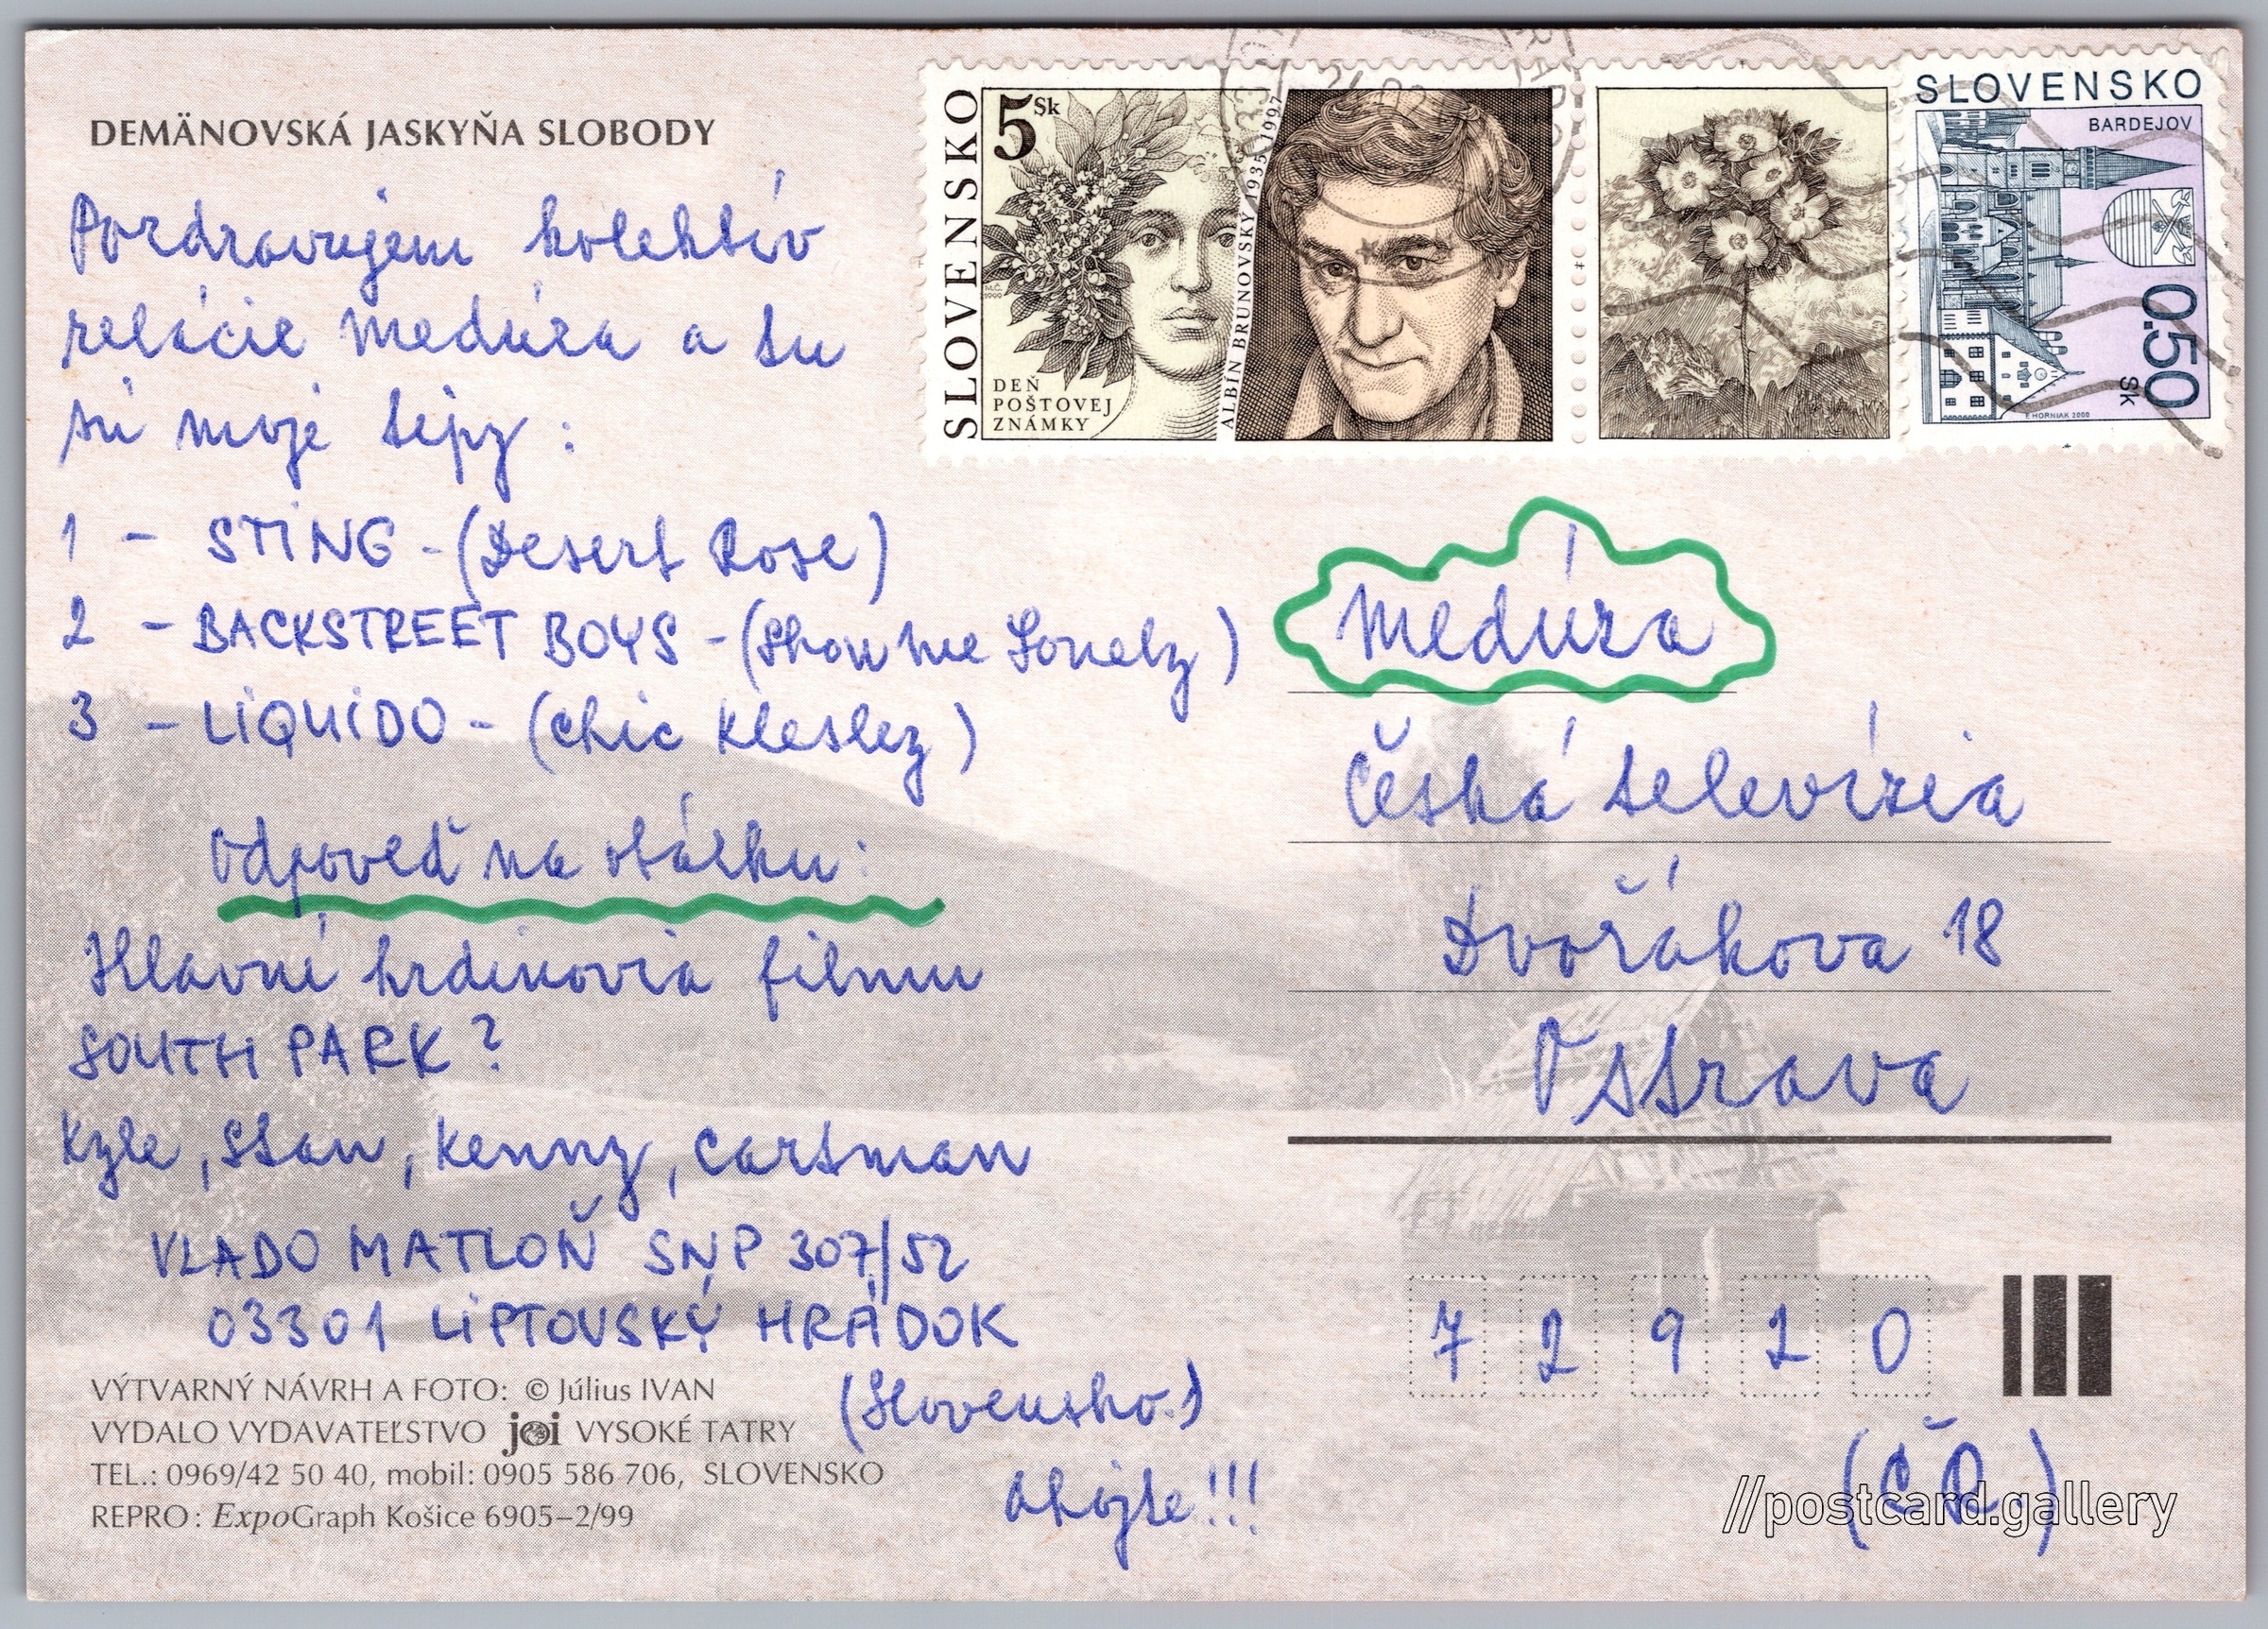 DEMÄNOVSKÁ JASKYŇA SLOBODY
Pozdravujem kolektív
relácie Medúza a tu
sú moje tipy:
1 - STING - (Desert Rose)
2 - BACKSTREET BOYS - (Show me Lonely)
3 - LIQUIDO - (Chic Klesley)
Odpoveď na otázku:
Hlavní hrdinovia filmu
SOUTH PARK?
Kyle, Stan, Kenny, Cartman
VLADO MATLOŇ SNP 307/52
03301 LIPTOVSKÝ HRÁDOK
(Slovensko.)
Ahojte!!!
VÝTVARNÝ NÁVRH A FOTO: © Július IVAN
VYDALO VYDAVATEĽSTVO joi VYSOKÉ TATRY
TEL.: 0969/42 50 40, mobil: 0905 586 706, SLOVENSKO
REPRO: ExpoGraph Košice 6905–2/99
SLOVENSKO
5 Sk
DEŇ
POŠTOVEJ
ZNÁMKY
ALBÍN BRUNOVSKÝ 1935-1997
SLOVENSKO
BARDEJOV
0.50
Sk
F. HORNIAK 2000
Medúza
Česká televízia
Dvořákova 18
Ostrava
72920
(ČR.)
//postcard.gallery